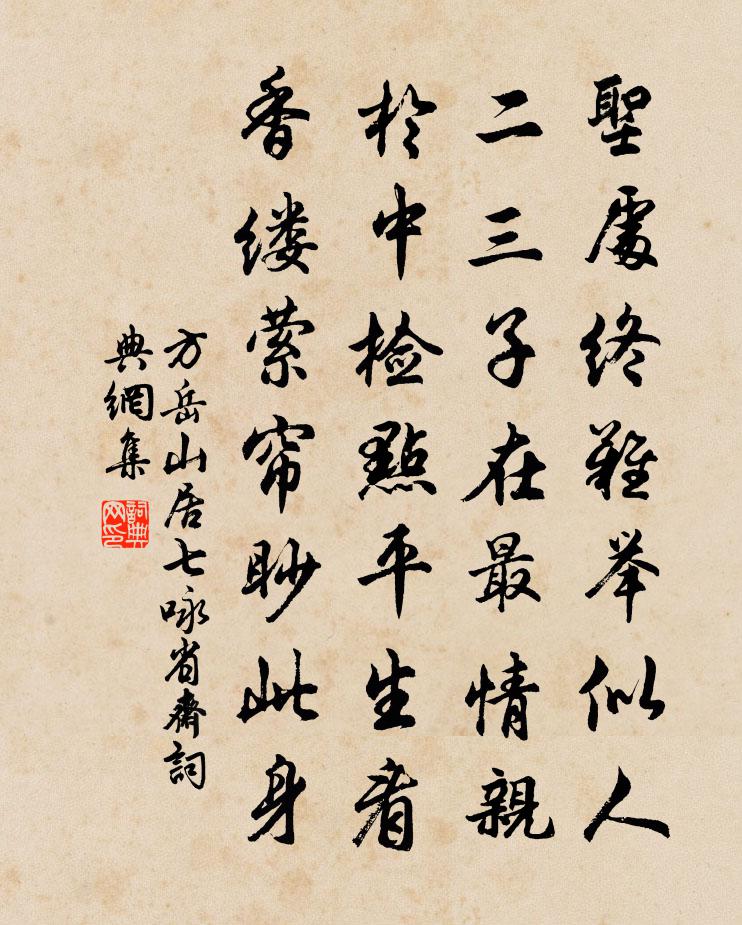 聖處終難举似人
二三子在最情親
於中檢點平生看
香缕萦帘眇此身
方岳山居七咏省齋詞
典網集
詞典網印